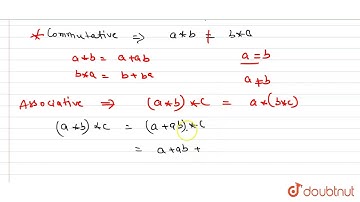 * Commutative ⇒ a*b ≠ b*a
a*b = a+ab a=b
b*a = b+ba a≠b
Associative ⇒ (a*b)*c = a*(b*c)
(a*b)*c = (a+ab)*c
= a+ab+
doubtnut